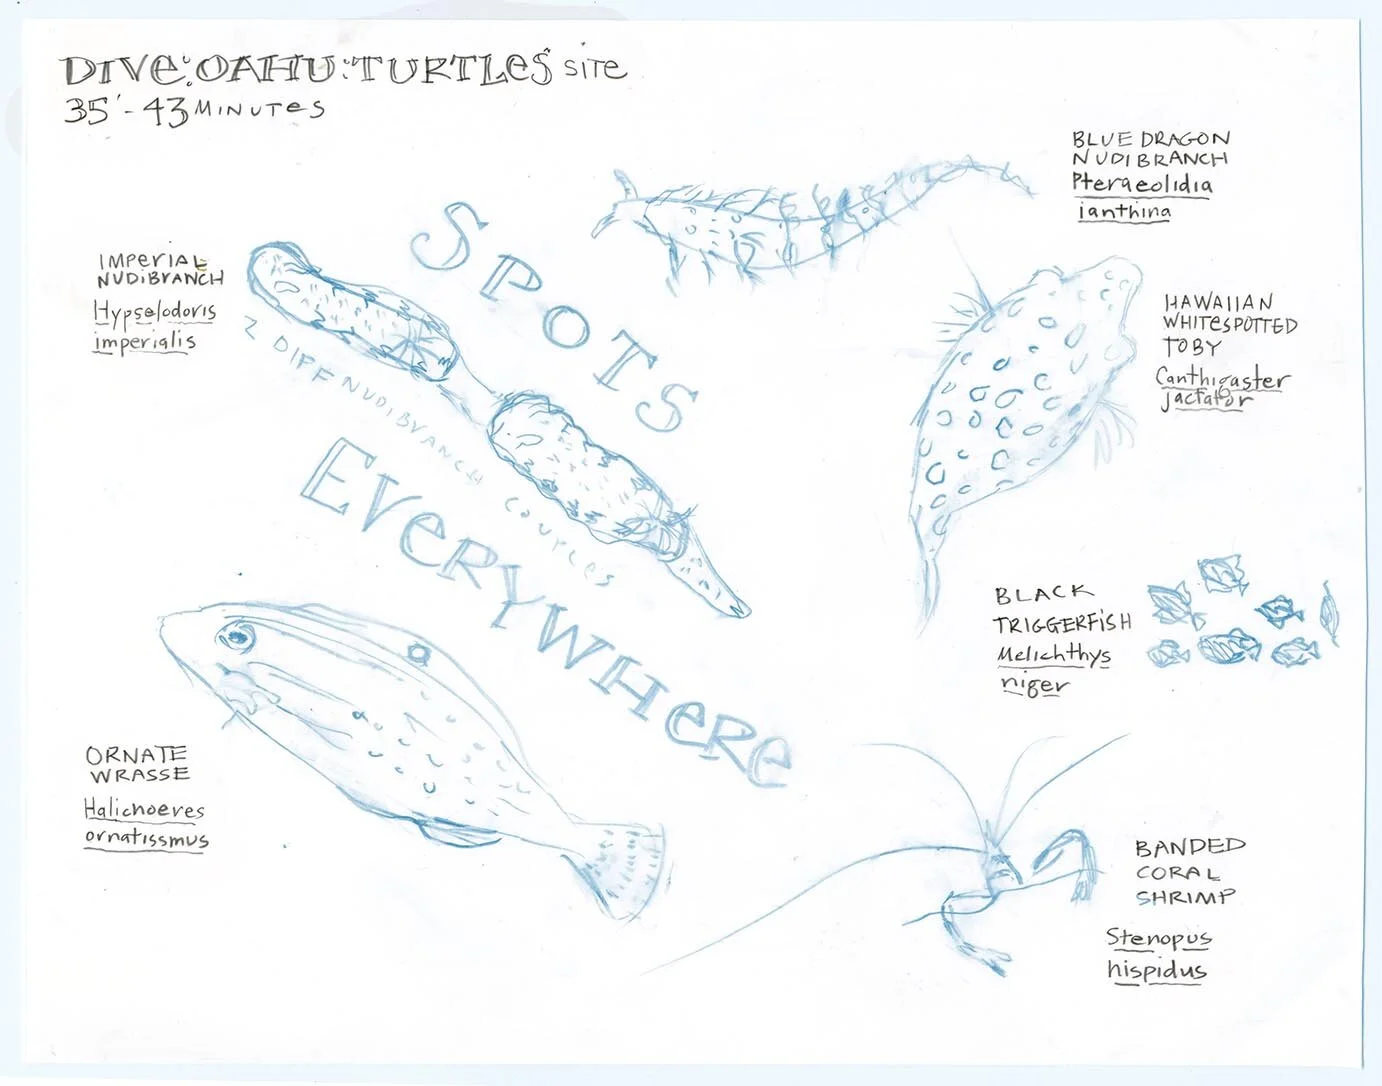 DIVE:OAHU:TURTLES SITE
35' - 43 MINUTES
BLUE DRAGON
NUDIBRANCH
Pteraeolidia
ianthina
IMPERIAL
NUDIBRANCH
Hypselodoris
imperialis
2 DIFF NUDIBRANCH COUPLES
SPOTS
EVERYWHERE
HAWAIIAN
WHITESPOTTED
TOBY
Canthigaster
jactator
BLACK
TRIGGERFISH
Melichthys
niger
ORNATE
WRASSE
Halichoeres
ornatissmus
BANDED
CORAL
SHRIMP
Stenopus
hispidus